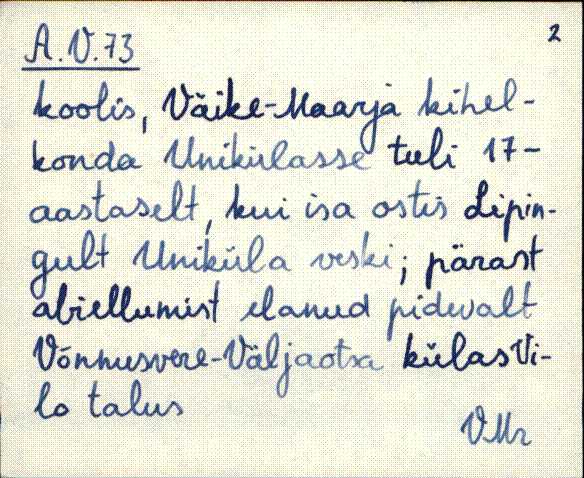 A.V.73
2
koolis, Väike-Maarja kihel-
konda Unikülasse tuli 17-
aastaselt, kui isa ostis Lipin-
gult Uniküla veski; pärast
abiellumist elanud pidevalt
Võnnusvere-Väljaotsa külas Vi-
lo talus
VMr